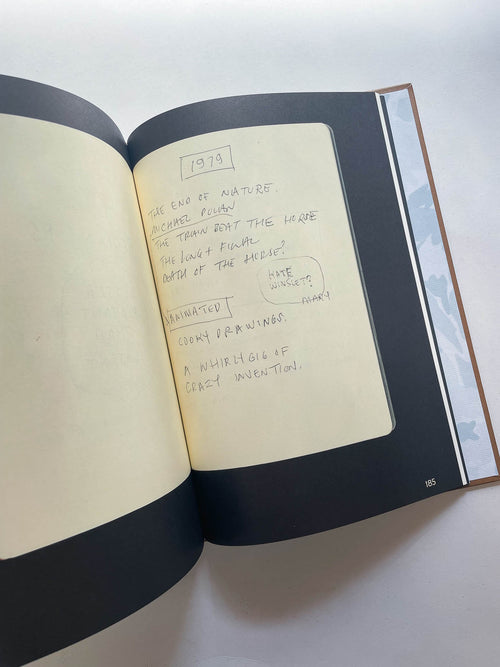 1979
THE END OF NATURE.
MICHAEL POLLAN
THE TRAIN BEAT THE HORSE
THE LONG & FINAL
DEATH OF THE HORSE?
HATE
WINSLET?
DIARY
LAMINATED
COOKY DRAWINGS.
A WHIRLYGIG OF
CRAZY INVENTION.
185